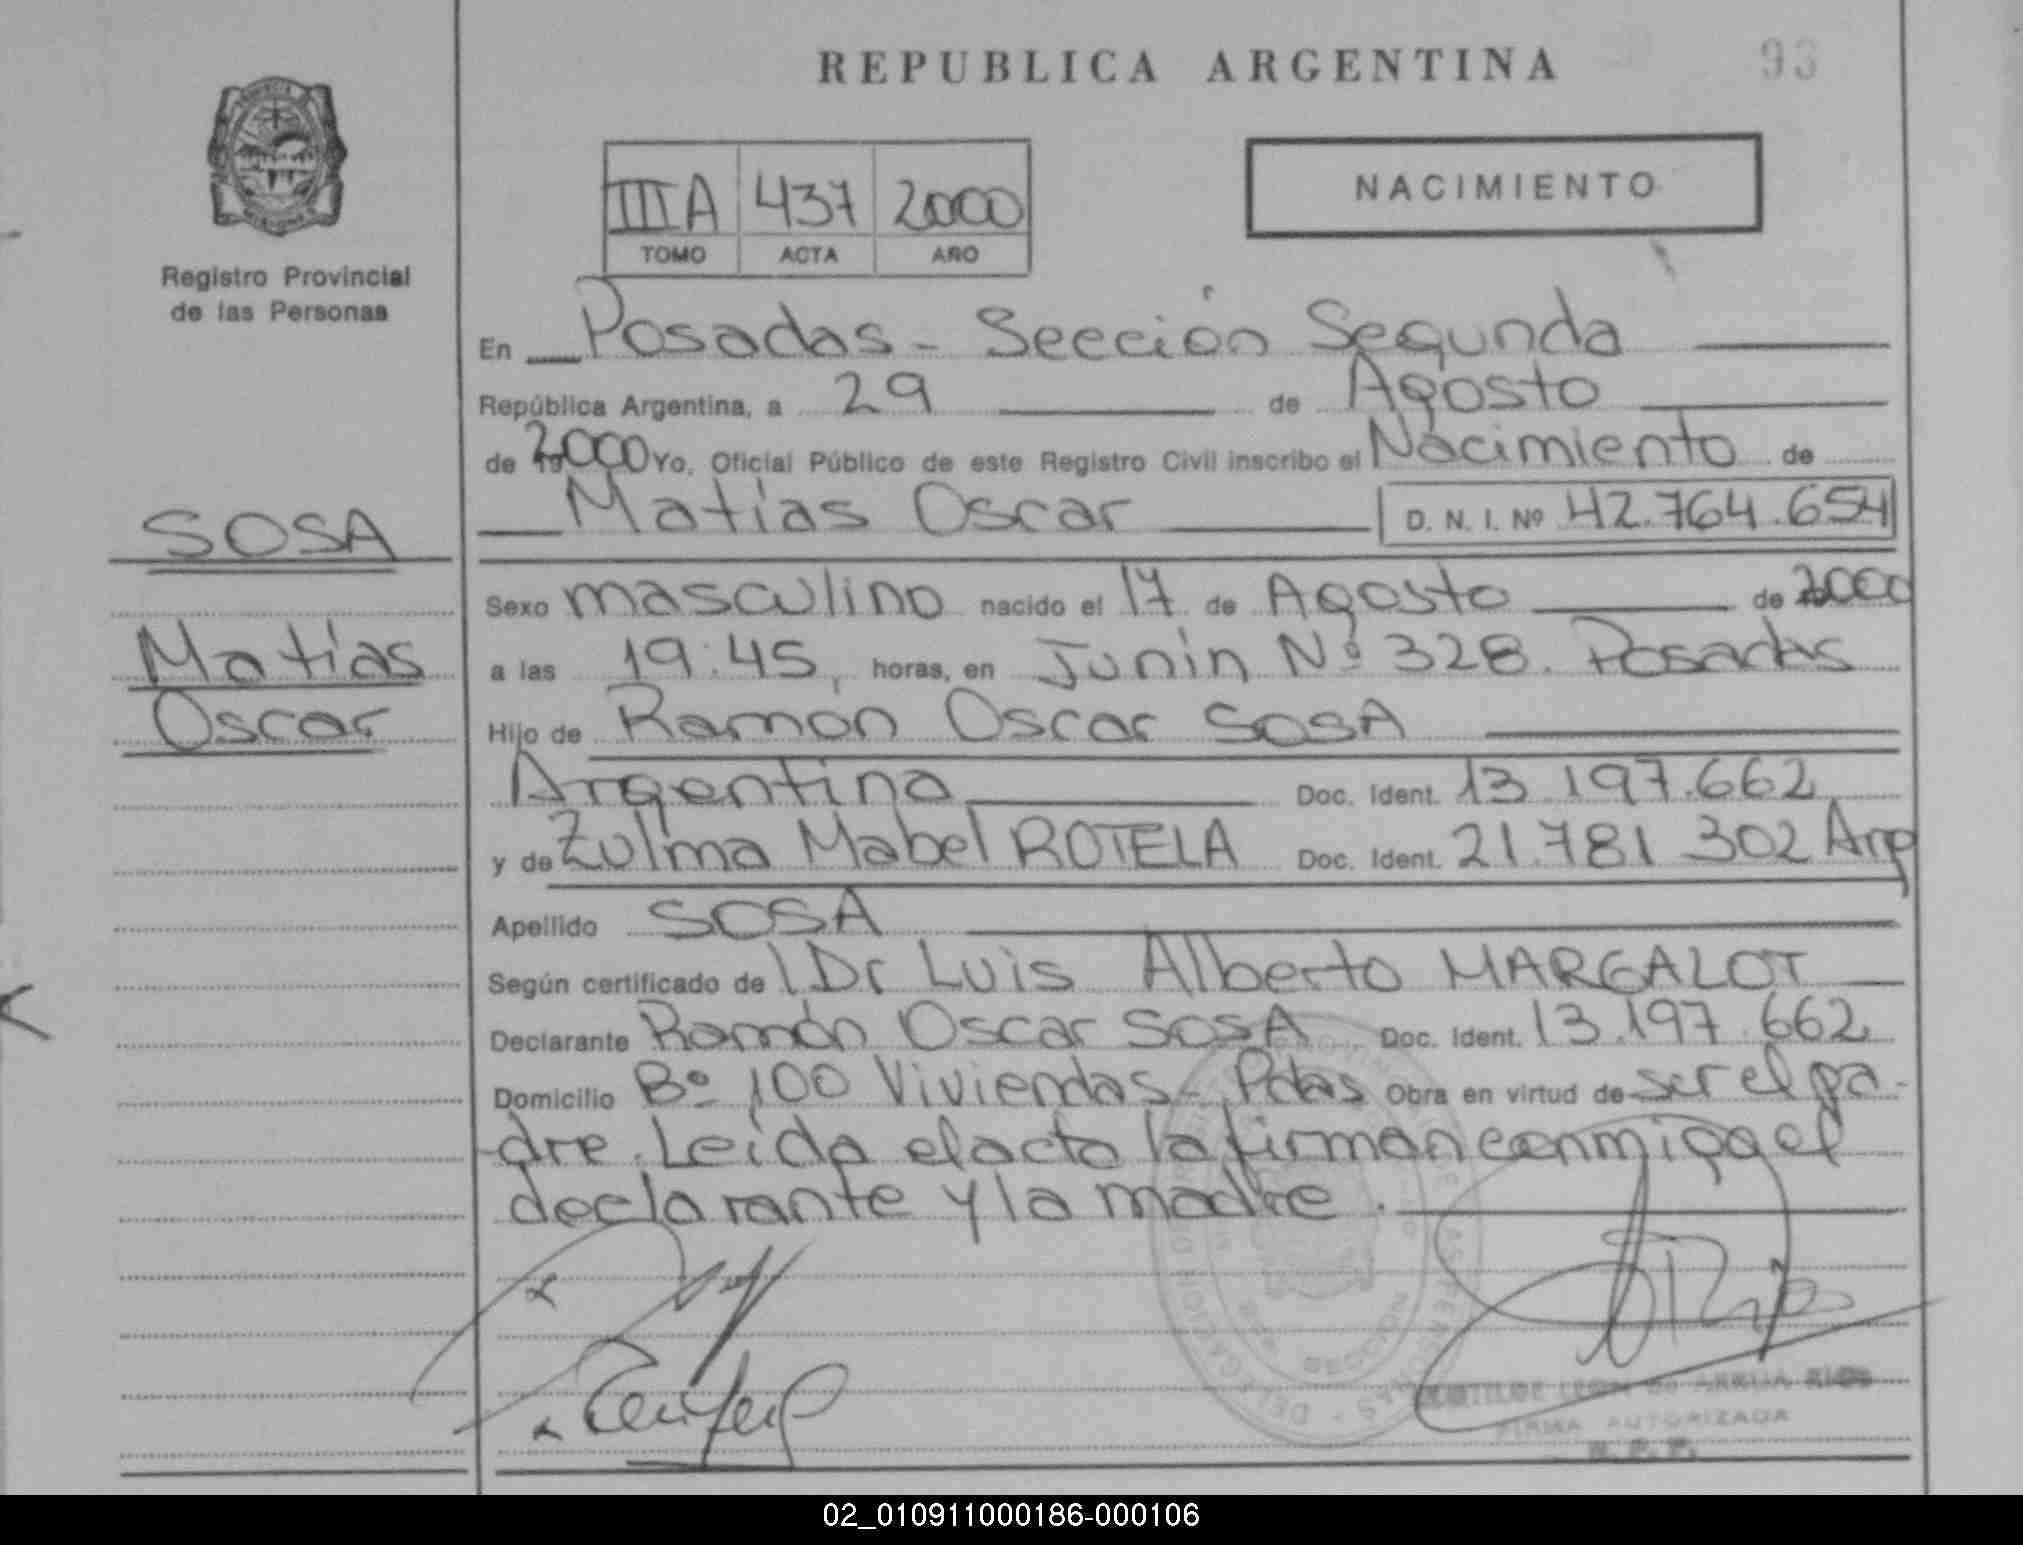 REPUBLICA ARGENTINA
93
Registro Provincial
de las Personas
IIIA 437 2000
TOMO ACTA AÑO
NACIMIENTO
En Posadas - Sección Segunda
República Argentina, a 29 de Agosto
de 2000 Yo, Oficial Público de este Registro Civil inscribo el Nacimiento de
Matías Oscar D. N. I. Nº 42.764.654
SOSA
Matías
Oscar
Sexo masculino nacido el 17 de Agosto de 2000
a las 19:45, horas, en Junin Nº 328. Posadas
Hijo de Ramon Oscar SOSA
Argentina Doc. Ident. 13.197.662
y de Zulma Mabel ROTELA Doc. Ident. 21.781.302 Arg
Apellido SOSA
Según certificado de l Dr Luis Alberto MARGALOT
Declarante Ramón Oscar SOSA Doc. Ident. 13.197.662
Domicilio Bº 100 Viviendas - Pdas Obra en virtud de ser el pa-
dre. Leída el acta la firman conmigo el
declarante y la madre.
SECCION
DELEGACION
LEON de ARRUA RIOS
FIRMA AUTORIZADA
R. P. P.
02_010911000186-000106